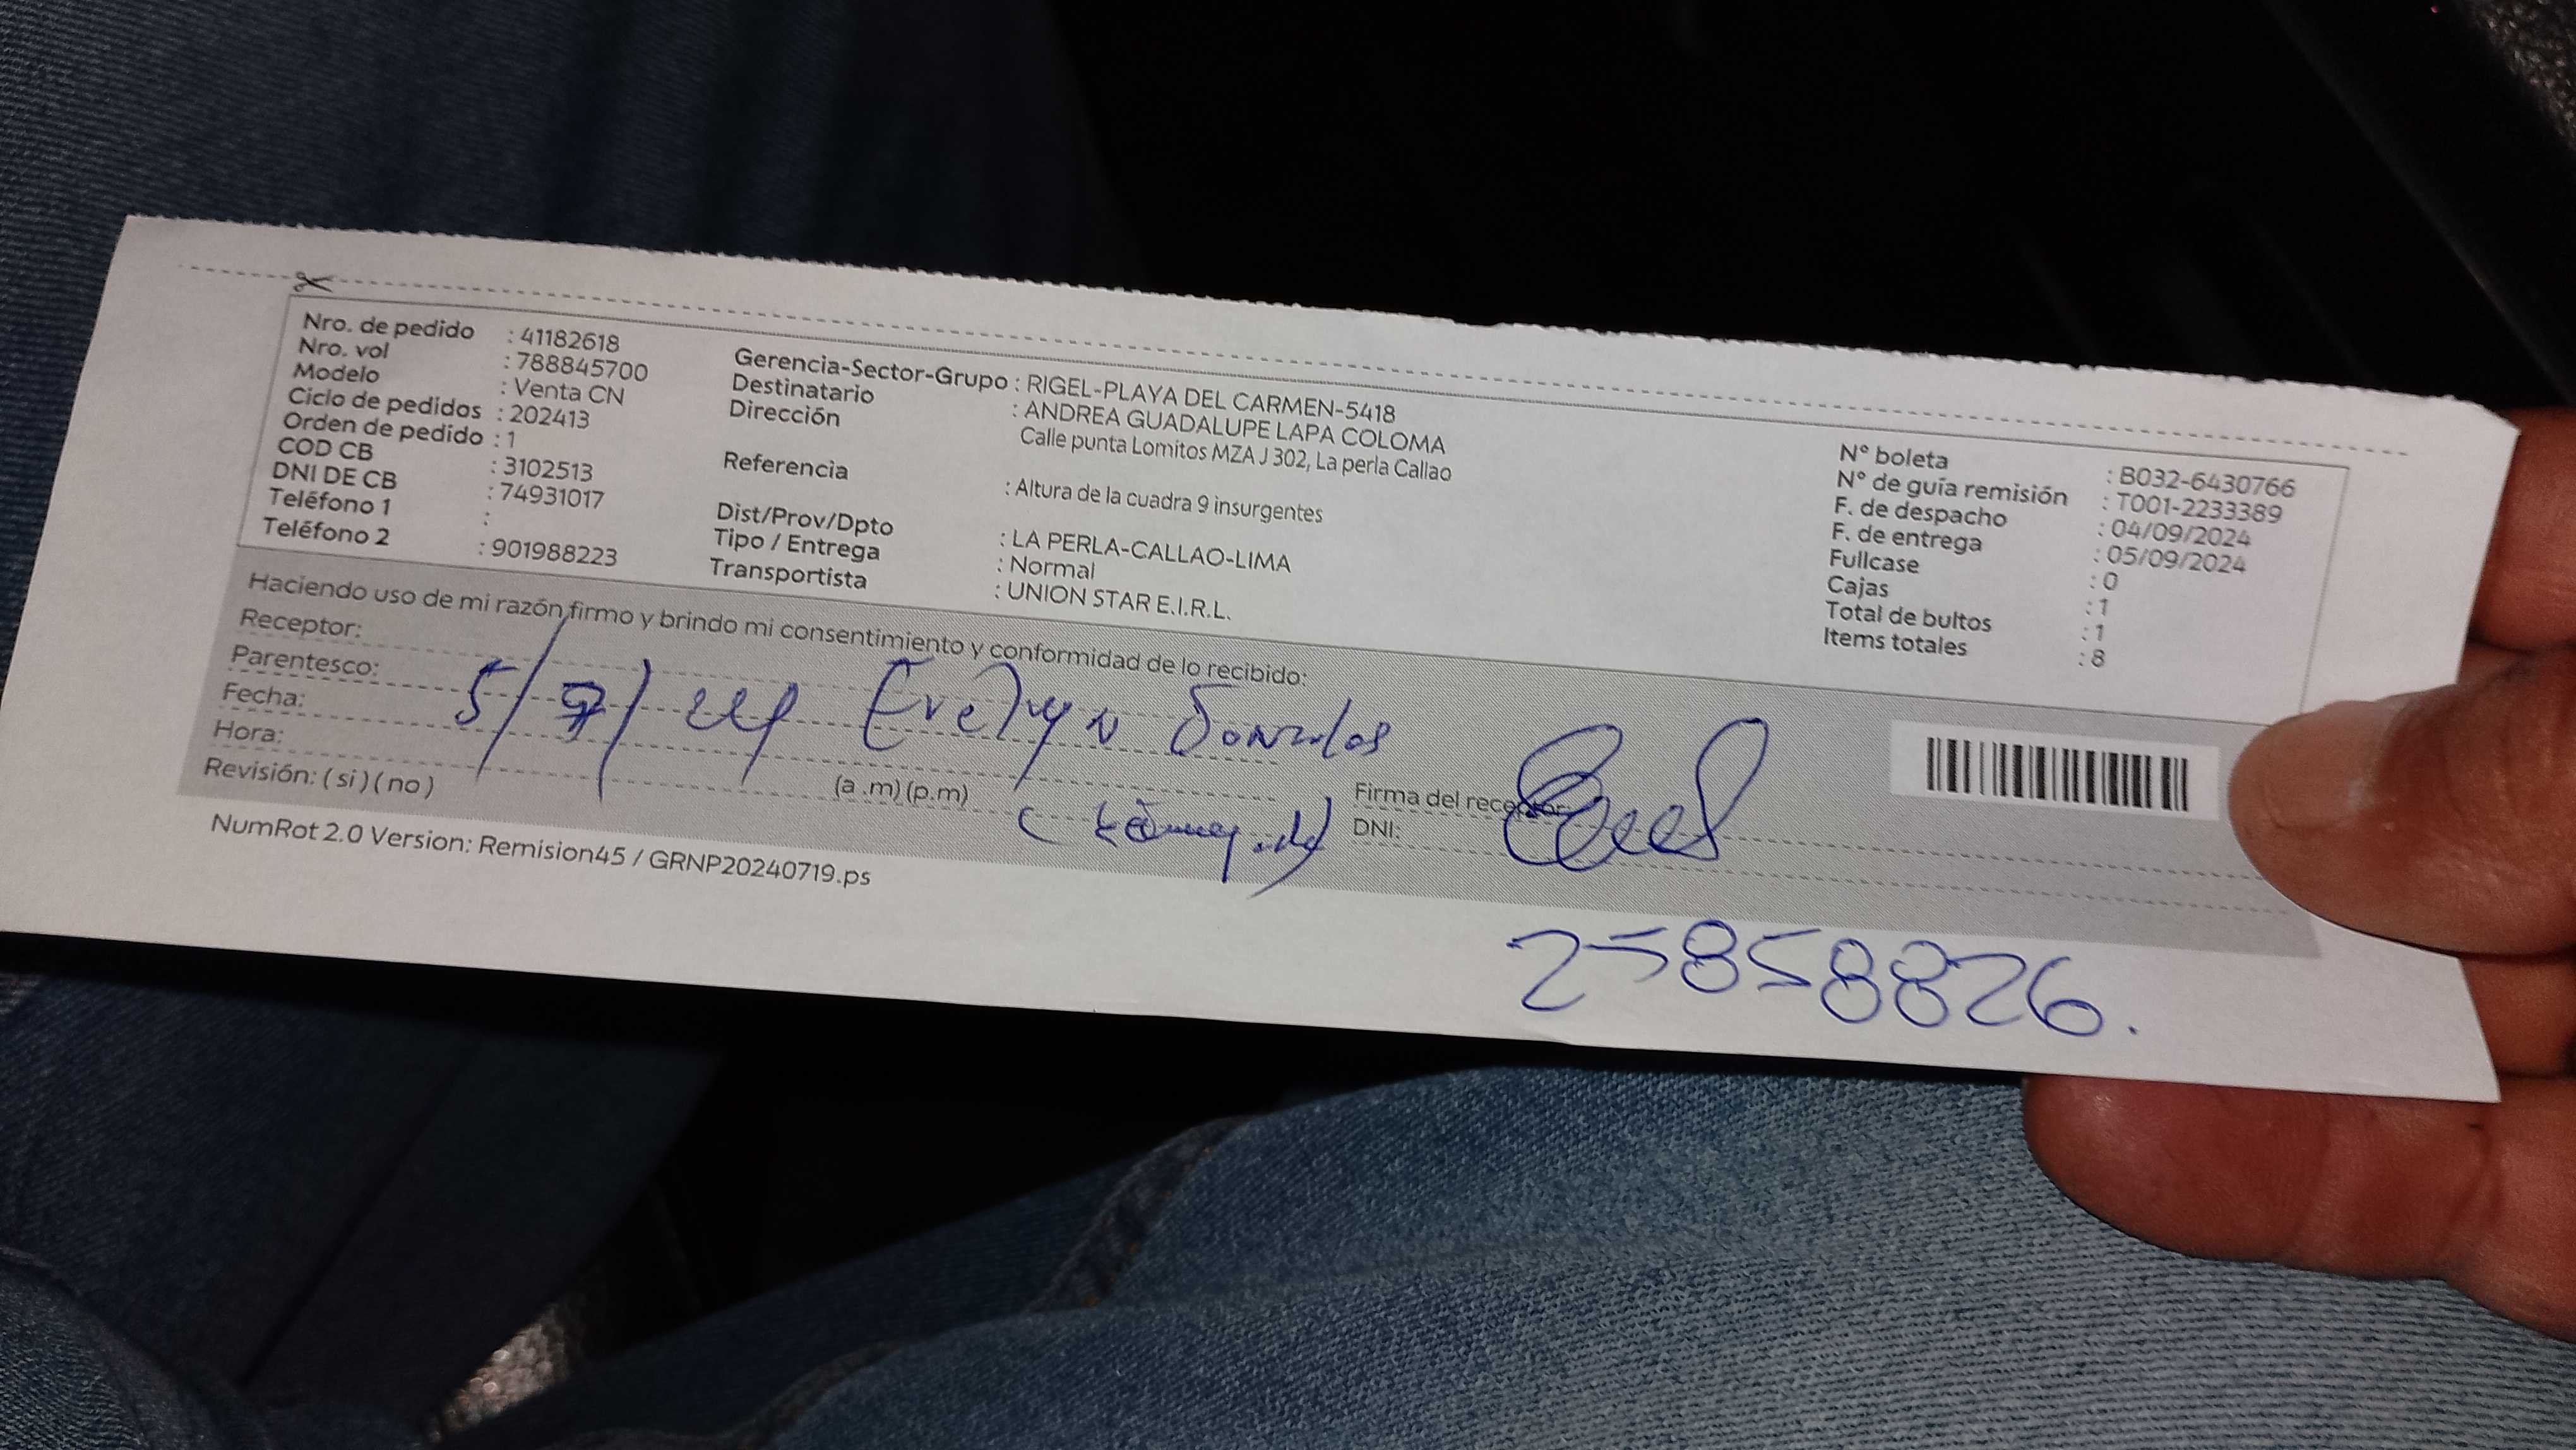 Nro. de pedido : 41182618
Nro. vol : 788845700
Modelo : Venta CN
Ciclo de pedidos : 202413
Orden de pedido : 1
COD CB : 3102513
DNI DE CB : 74931017
Teléfono 1 :
Teléfono 2 : 901988223
Gerencia-Sector-Grupo : RIGEL-PLAYA DEL CARMEN-5418
Destinatario : ANDREA GUADALUPE LAPA COLOMA
Dirección Calle punta Lomitos MZA J 302, La perla Callao
Referencia : Altura de la cuadra 9 insurgentes
Dist/Prov/Dpto : LA PERLA-CALLAO-LIMA
Tipo / Entrega : Normal
Transportista : UNION STAR E.I.R.L.
N° boleta : B032-6430766
N° de guía remisión : T001-2233389
F. de despacho : 04/09/2024
F. de entrega : 05/09/2024
Fullcase : 0
Cajas : 1
Total de bultos : 1
Items totales : 8
Haciendo uso de mi razón firmo y brindo mi consentimiento y conformidad de lo recibido:
Receptor:
Parentesco:
Fecha:
5/9/24 Evelyn
Hora: (a .m) (p.m)
Revisión: ( si ) ( no )
Firma del receptor:
DNI:
25858826.
NumRot 2.0 Version: Remision45 / GRNP20240719.ps